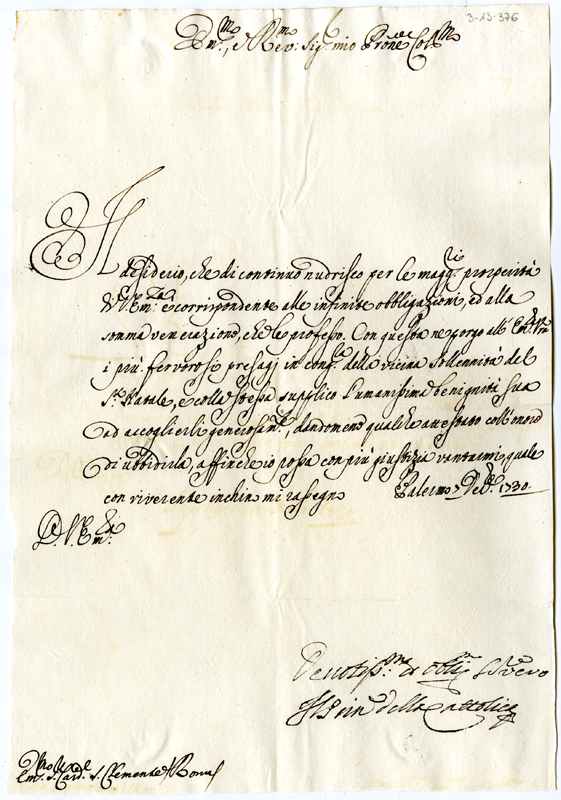 3-13-376
Em.mo, e Rev.mo Sig.r mio P.rone Col.mo
Il
desiderio, che di continuo nudrisco per le magg.ri prosperità
di V.Em.za è corrispondente alle infinite obbligazioni, ed alla
somma venerazione, che le professo. Con questa ne porgo all' Em.za V.ra
i più fervorosi presagj in cong.ra della vicina sollennità del
S.to Natale, e colla stessa supplico l'umanissima benignità sua
ad accoglierli generosam.te, dandomene qualche attestato coll'onore
di ubbidirla, affinche io possa con più giustizia vantarmi, quale
con riverente inchino mi rassegno Palermo 7 Xbre 1730.
D. V. Em.za
Devotiss.mo et obblig.mo Ser.re vero
Il Prin.e della Cattolica
Em.mo S.r Card.le S. Clemente Roma